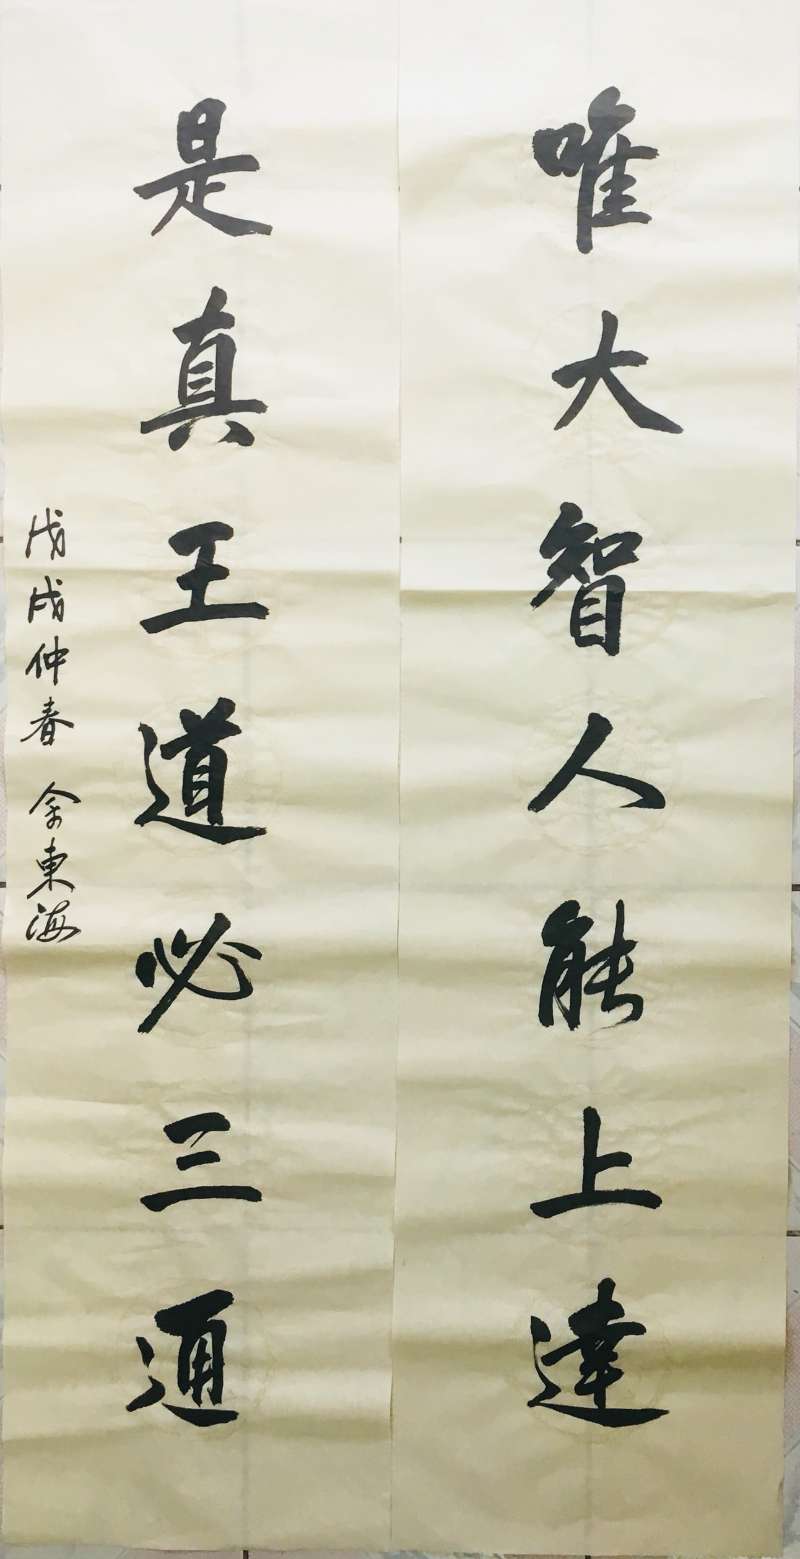 唯大智人能上達
是真王道必三通
戊戌仲春 余東海